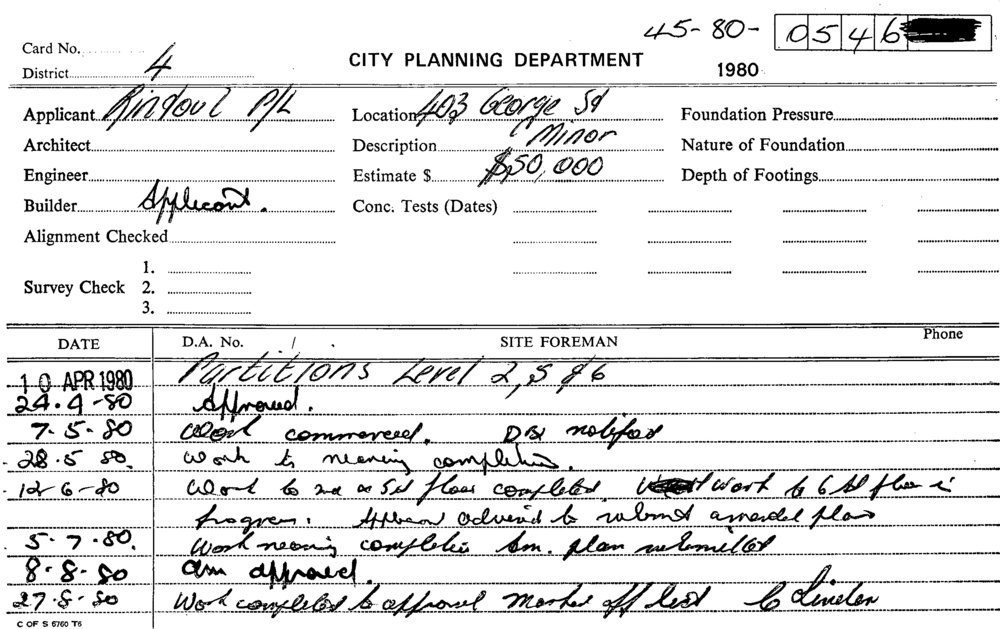 45-80- 0546
Card No.
District 4
CITY PLANNING DEPARTMENT
1980
Applicant Rindoul P/L
Location 403 George St
Foundation Pressure
Architect
Description Minor
Nature of Foundation
Engineer
Estimate $ $50,000
Depth of Footings
Builder Applicant.
Conc. Tests (Dates)
Alignment Checked
Survey Check
1.
2.
3.
DATE
D.A. No.
SITE FOREMAN
Phone
10 APR 1980 Partitions Level 2, 5 & 6
24.4-80 Approved.
7-5-80 Work commenced. notified
28.5 80. Work is nearing completion.
12-6-80 Work to 2nd & 5th floor completed. Work to 6th floor in
progress. advised to submit amended plan
5.7.80. Work nearing completion Am. plan submitted
8-8-80 Am approved.
27-8-80 Work completed to approval Marked off
C OF S 6760 T6